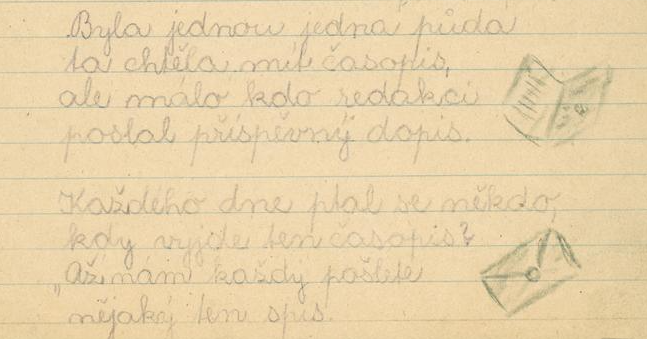 Byla jednou jedna půda
ta chtěla mít časopis,
ale málo kdo redakci
poslal příspěvný dopis.
Každého dne ptal se někdo,
kdy vyjde ten časopis?
„Až nám každy pošlete
nějaký ten spis.